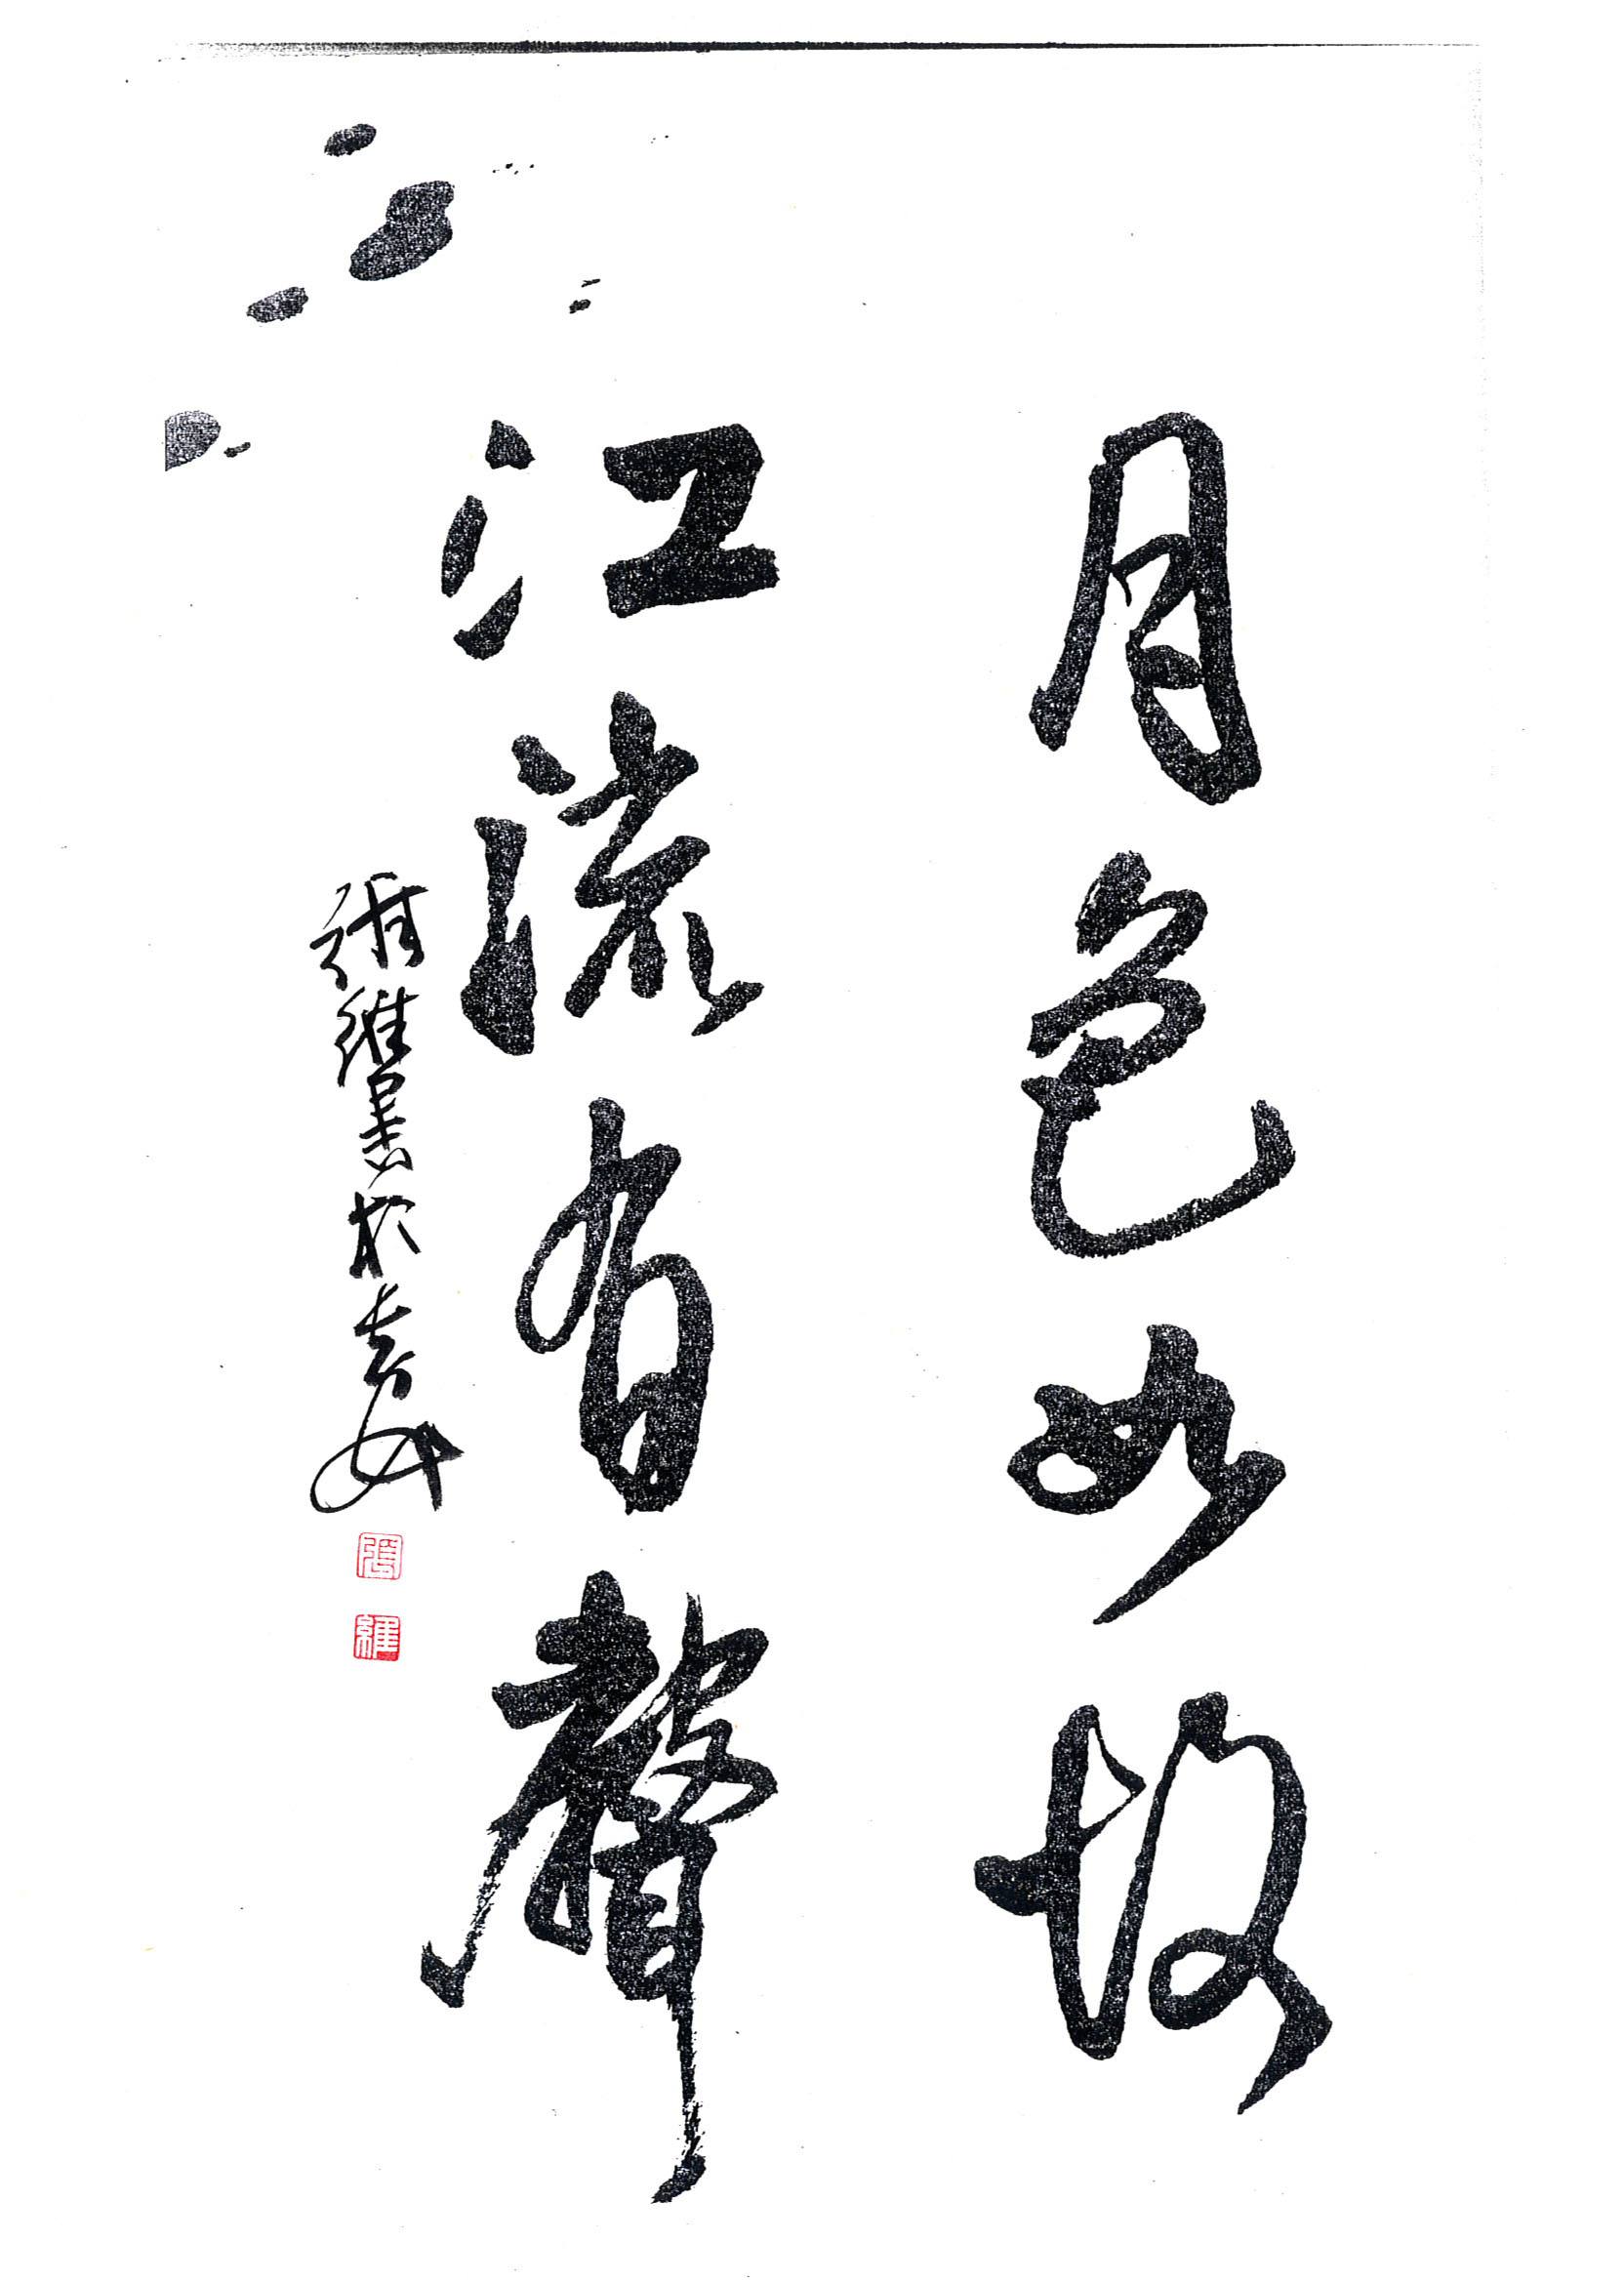 月色如故
江流有聲
張維書於長安
張
維